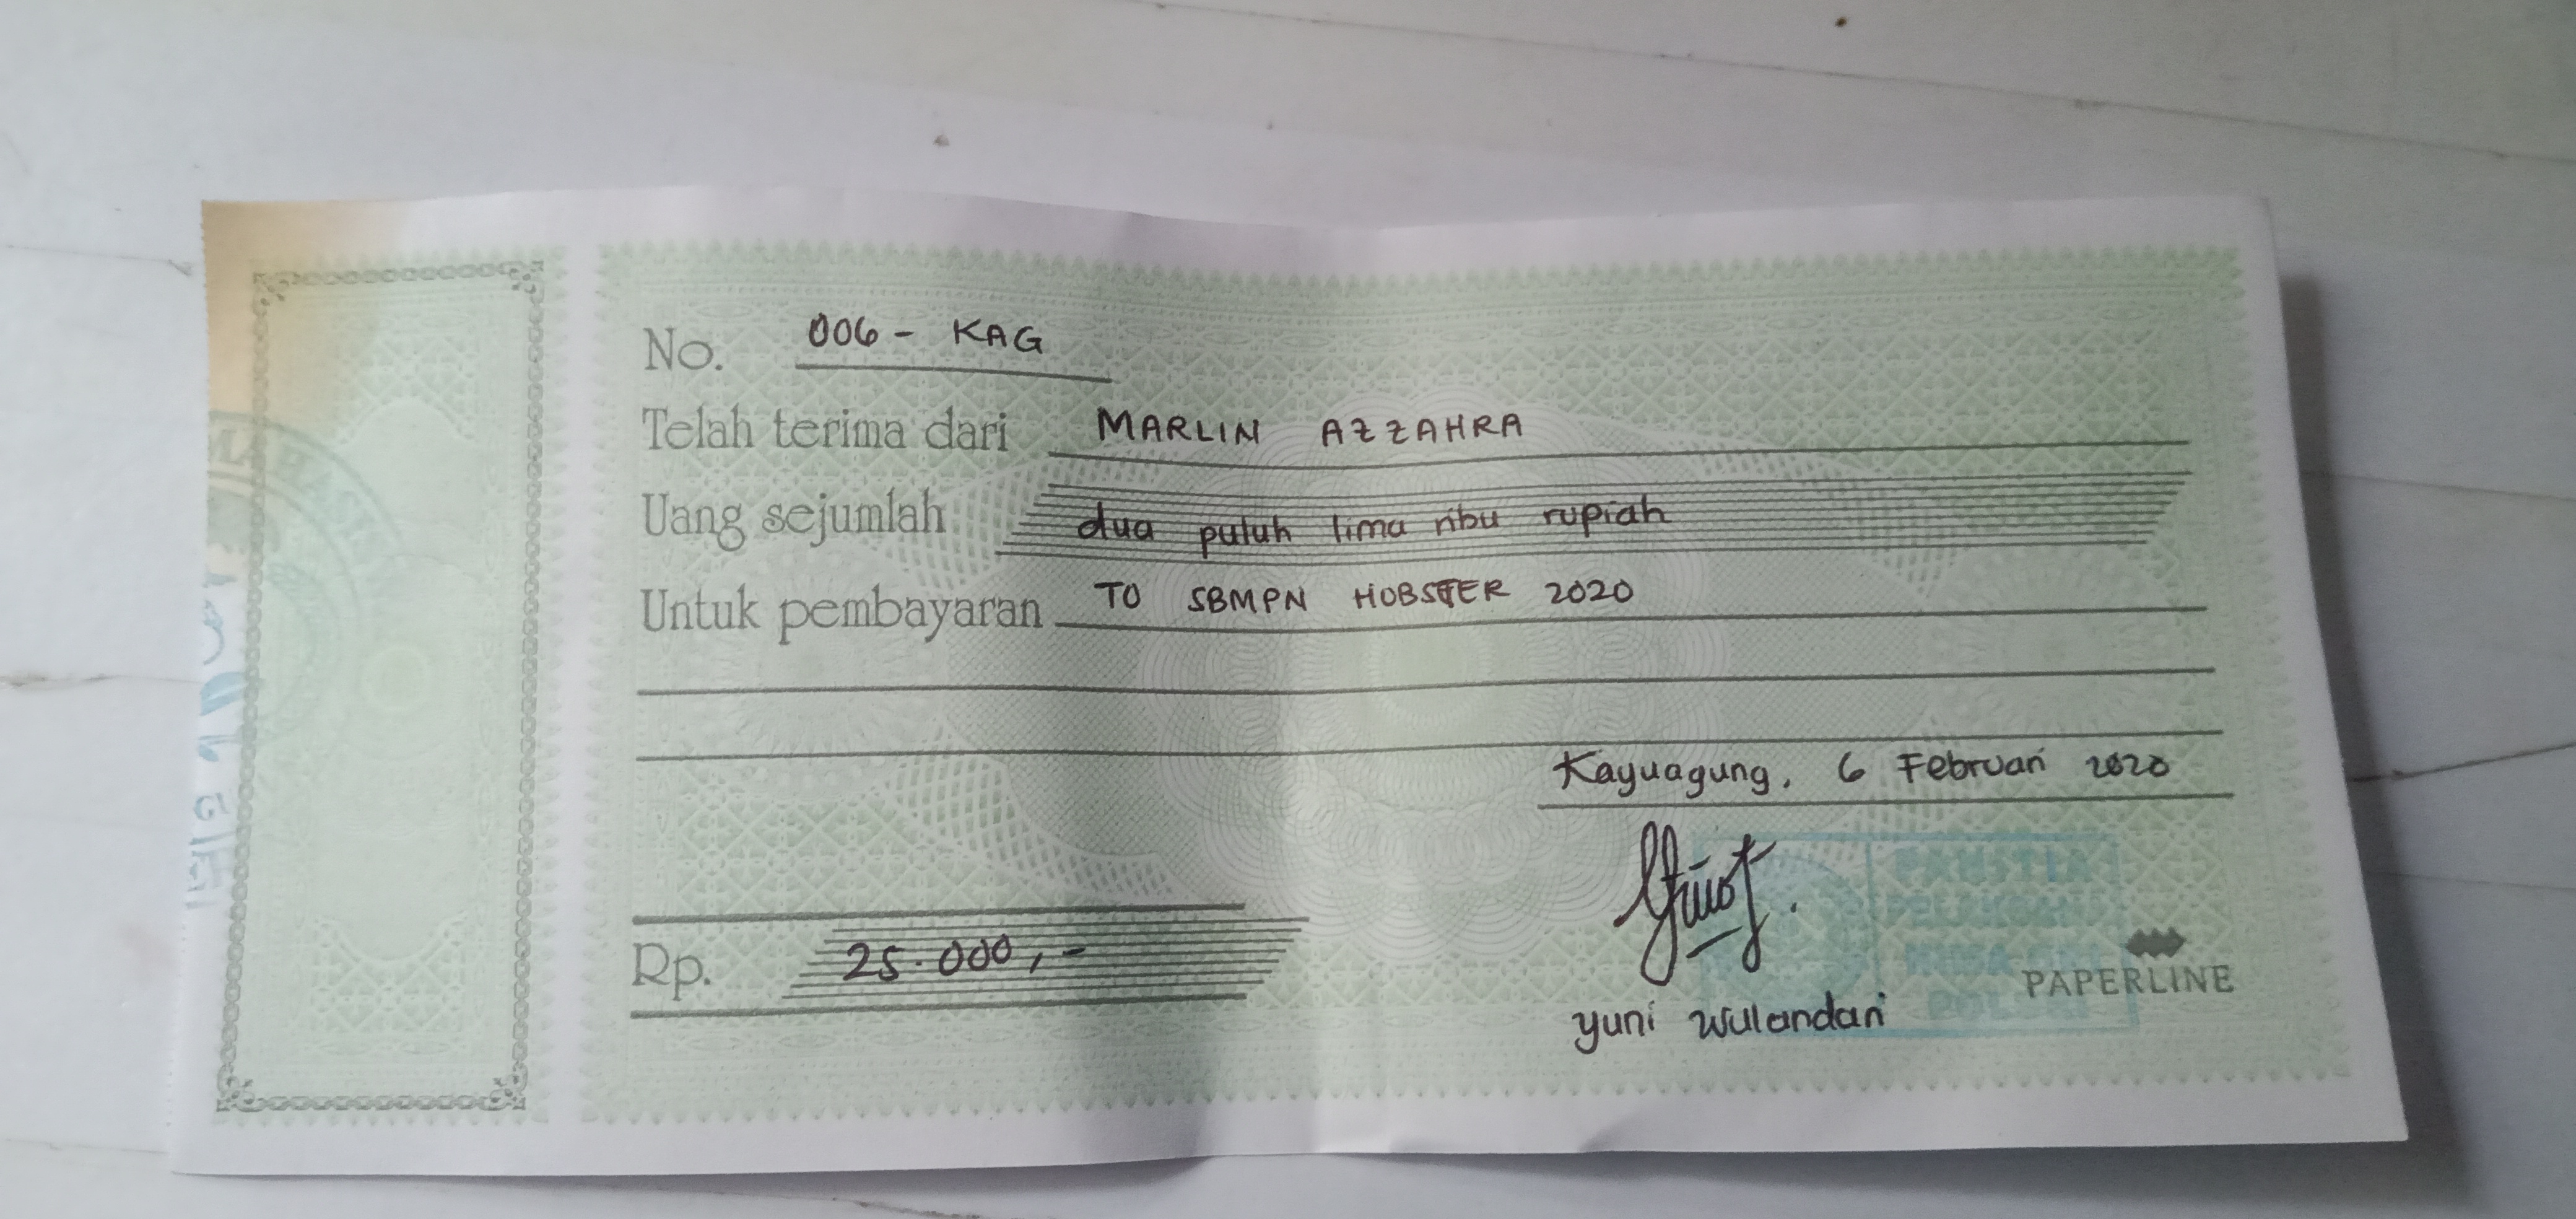 No. 006 - KAG
Telah terima dari MARLIN AZZAHRA
Uang sejumlah dua puluh lima ribu rupiah
Untuk pembayaran TO SBMPN HOBSTER 2020
Kayuagung, 6 Februari 2020
Rp. 25.000,-
PANITIA
PAPERLINE
yuni wulandari